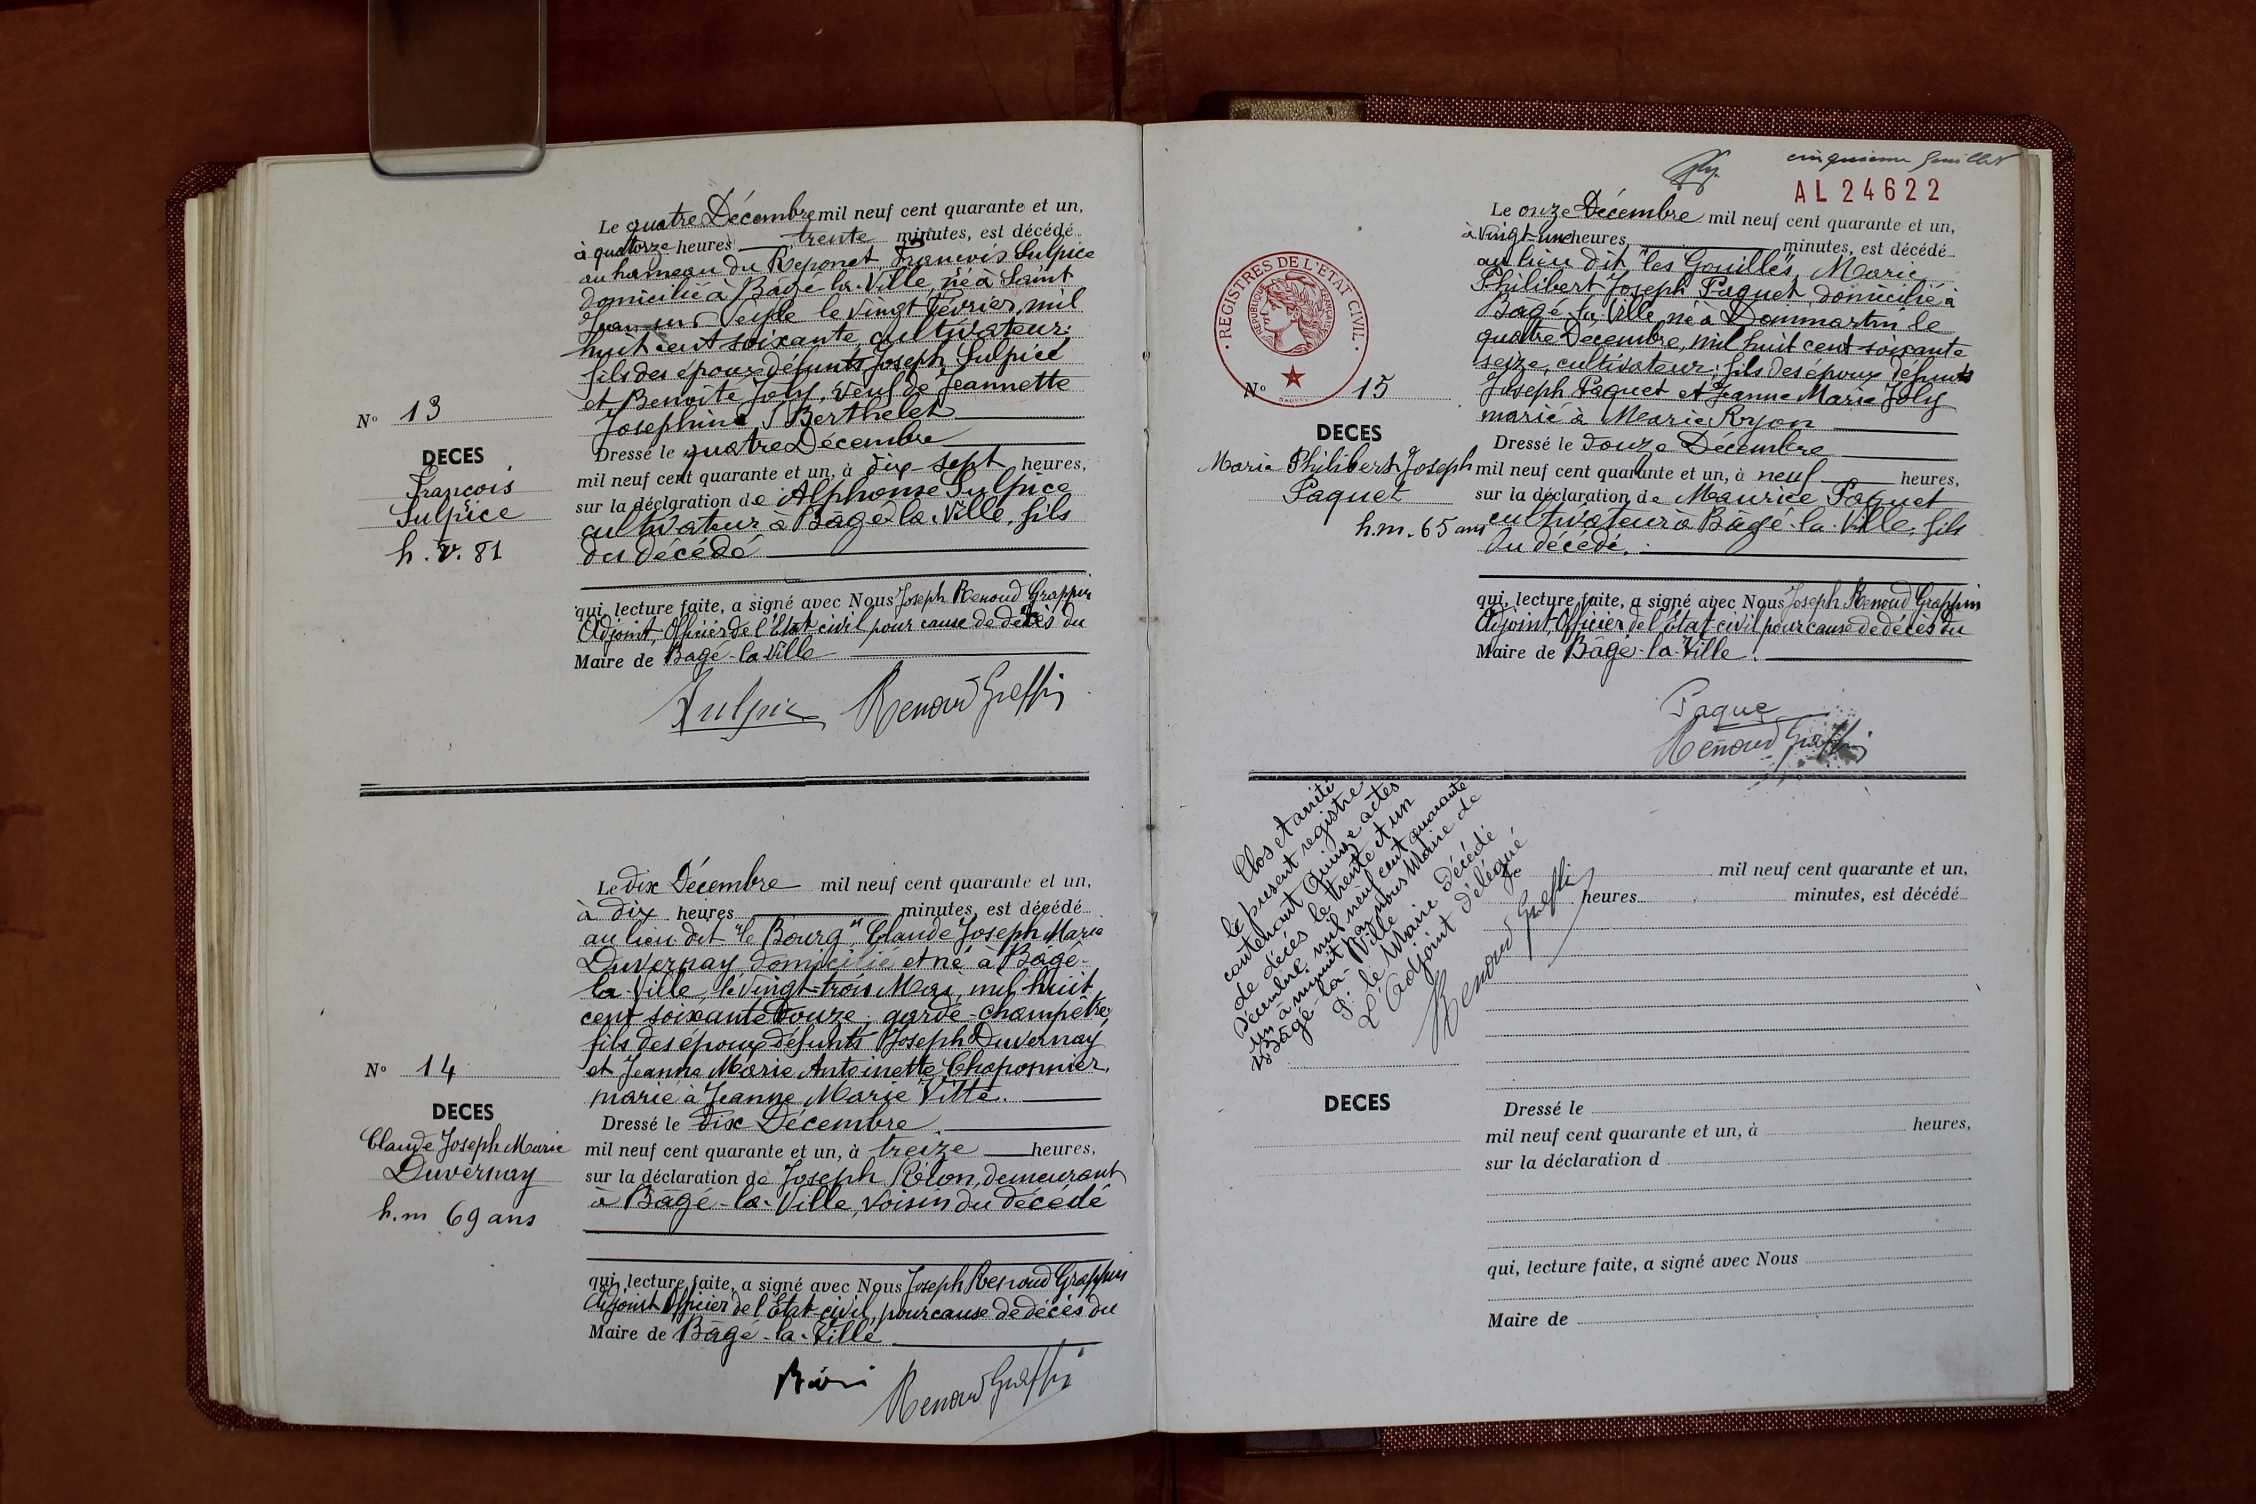 Le quatre Décembre mil neuf cent quarante et un,
à quatorze heures trente minutes, est décédé
au hameau du Reponet, François Sulpice
domicilié à Bâgé-la-Ville, né à Saint
Jean sur Veyle le vingt Février mil
huit cent soixante, cultivateur;
fils des époux défunts Joseph Sulpice
et Benoite Joly, veuf de Jeannette
Josephine Berthelet
Dressé le quatre Décembre
mil neuf cent quarante et un, à dix-sept heures,
sur la déclaration de Alphonse Sulpice
cultivateur à Bâgé-la-Ville, fils
du décédé
qui, lecture faite, a signé avec Nous Joseph Renoud Grappin
Adjoint, Officier de l'Etat civil pour cause de décès du
Maire de Bâgé-la-Ville
Sulpice Renoud Grappin
No 13
DECES
François
Sulpice
h. v. 81
Le dix Décembre mil neuf cent quarante et un,
à dix heures minutes, est décédé
au lieu dit "le Bourg", Claude Joseph Marie
Duvernay domicilié et né à Bâgé-
la-Ville, le vingt-trois Mai, mil huit
cent soixante douze, garde-champêtre,
fils des époux défunts Joseph Duvernay
et Jeanne Marie Antoinette Chaponnier,
marié à Jeanne Marie Vitte.
Dressé le dix Décembre
mil neuf cent quarante et un, à treize heures,
sur la déclaration de Joseph, demeurant
à Bagé-la-Ville, voisin du décédé
qui, lecture faite, a signé avec Nous Joseph Renoud Grappin
Adjoint Officier de l'Etat-civil, pour cause de décès du
Maire de Bâgé-la-Ville
Renoud Grappin
No 14
DECES
Claude Joseph Marie
Duvernay
h.m 69 ans
cinquième feuillet
AL 24622
Le onze Décembre mil neuf cent quarante et un,
à vingt-une heures, minutes, est décédé
au lieu dit "les Gouilles", Marie
Philibert Joseph Paquet, domicilié à
Bâgé-la-Ville, né à Dommartin le
quatre Decembre, mil huit cent soixante
seize, cultivateur; fils des époux défunts
Joseph Paquet et Jeanne Marie Joly
marié à Marie Ryon
Dressé le douze Décembre
mil neuf cent quarante et un, à neuf heures,
sur la déclaration de Maurice Paquet
cultivateur à Bâgé-la-Ville, fils
du décédé.
qui, lecture faite, a signé avec Nous Joseph Renoud Grappin
Adjoint, Officier de l'Etat-civil pour cause de décès du
Maire de Bâgé-la-Ville.
Paque
Renoud Grappin
REGISTRES DE L'ETAT CIVIL
REPUBLIQUE FRANÇAISE
No 15
DECES
Marie Philibert Joseph
Paquet
h.m. 65 ans
Clos et arrêté
le présent registre
contenant quinze actes
de décès le trente et un
décembre mil neuf cent quarante
un à minuit par nous Maire de
Bâgé-la-Ville
P. le Maire décédé
L'Adjoint délégué
Renoud Grappin
Le mil neuf cent quarante et un,
heures minutes, est décédé
DECES
Dressé le
mil neuf cent quarante et un, à heures,
sur la déclaration d
qui, lecture faite, a signé avec Nous
Maire de